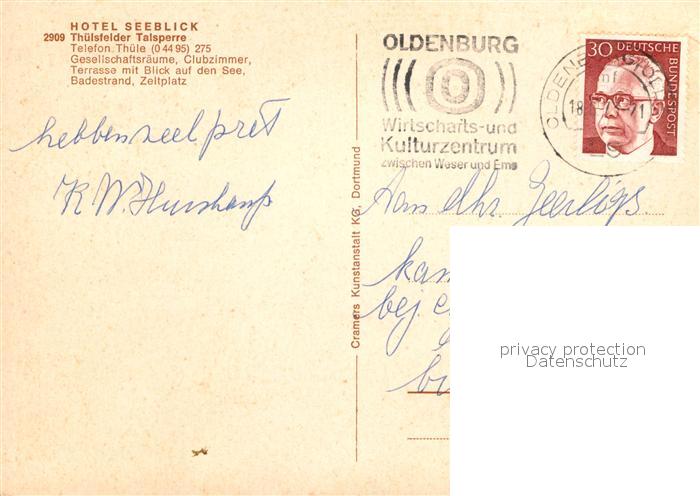 HOTEL SEEBLICK
2909 Thülsfelder Talsperre
Telefon Thüle (0 44 95) 275
Gesellschaftsräume, Clubzimmer,
Terrasse mit Blick auf den See,
Badestrand, Zeltplatz
hebben veel pret
K W.
Cramers Kunstanstalt KG, Dortmund
OLDENBURG
Wirtschafts-und
Kulturzentrum
zwischen Weser und Ems
30 DEUTSCHE
BUNDESPOST
OLDENB
18
71
Aan dhr.
bej.
privacy protection
Datenschutz